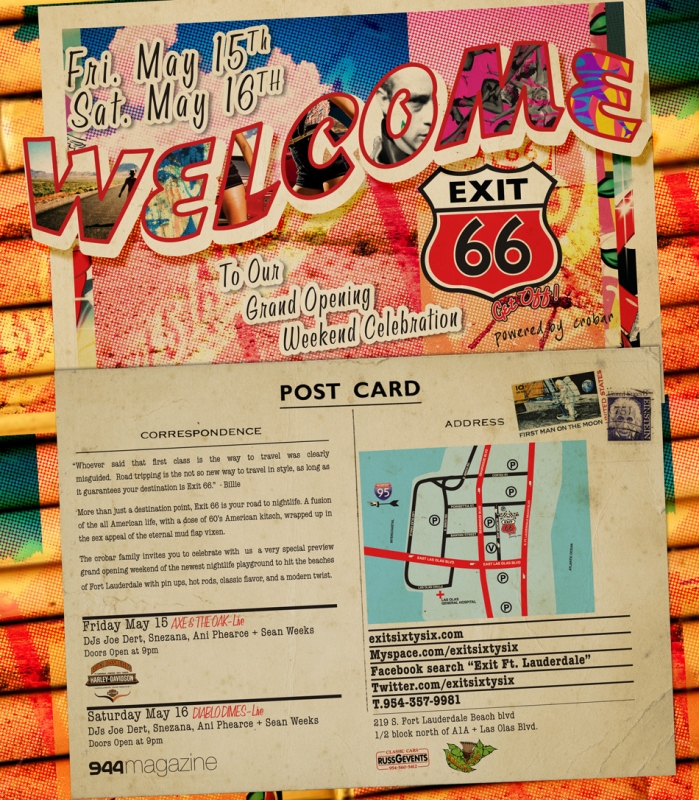 Fri. May 15th
Sat. May 16TH
WELCOME
EXIT
66
Get Off!
powered by crobar
To Our
Grand Opening
Weekend Celebration
POST CARD
CORRESPONDENCE
ADDRESS
10¢
UNITED STATES
FIRST MAN ON THE MOON
"Whoever said that first class is the way to travel was clearly
misguided. Road tripping is the not so new way to travel in style, as long as
it guarantees your destination is Exit 66." - Billie
More than just a destination point, Exit 66 is your road to nightlife. A fusion
of the all American life, with a dose of 60's American kitsch, wrapped up in
the sex appeal of the eternal mud flap vixen.
The crobar family invites you to celebrate with us a very special preview
grand opening weekend of the newest nightlife playground to hit the beaches
of Fort Lauderdale with pin ups, hot rods, classic flavor, and a modern twist.
95
P
P
P
P
V
P
P
EAST LAS OLAS BLVD
EAST LAS OLAS BLVD
LAS OLAS
GENERAL HOSPITAL
ATLANTIC OCEAN
Friday May 15 AXE & THE OAK - Live
DJs Joe Dert, Snezana, Ani Phearce + Sean Weeks
Doors Open at 9pm
HARLEY-DAVIDSON
Saturday May 16 DIABLO DIMES - Live
DJs Joe Dert, Snezana, Ani Phearce + Sean Weeks
Doors Open at 9pm
944magazine
exitsixtysix.com
Myspace.com/exitsixtysix
Facebook search "Exit Ft. Lauderdale"
Twitter.com/exitsixtysix
T.954-357-9981
219 S. Fort Lauderdale Beach blvd
1/2 block north of A1A + Las Olas Blvd.
CLASSIC CARS
RUSSGEVENTS